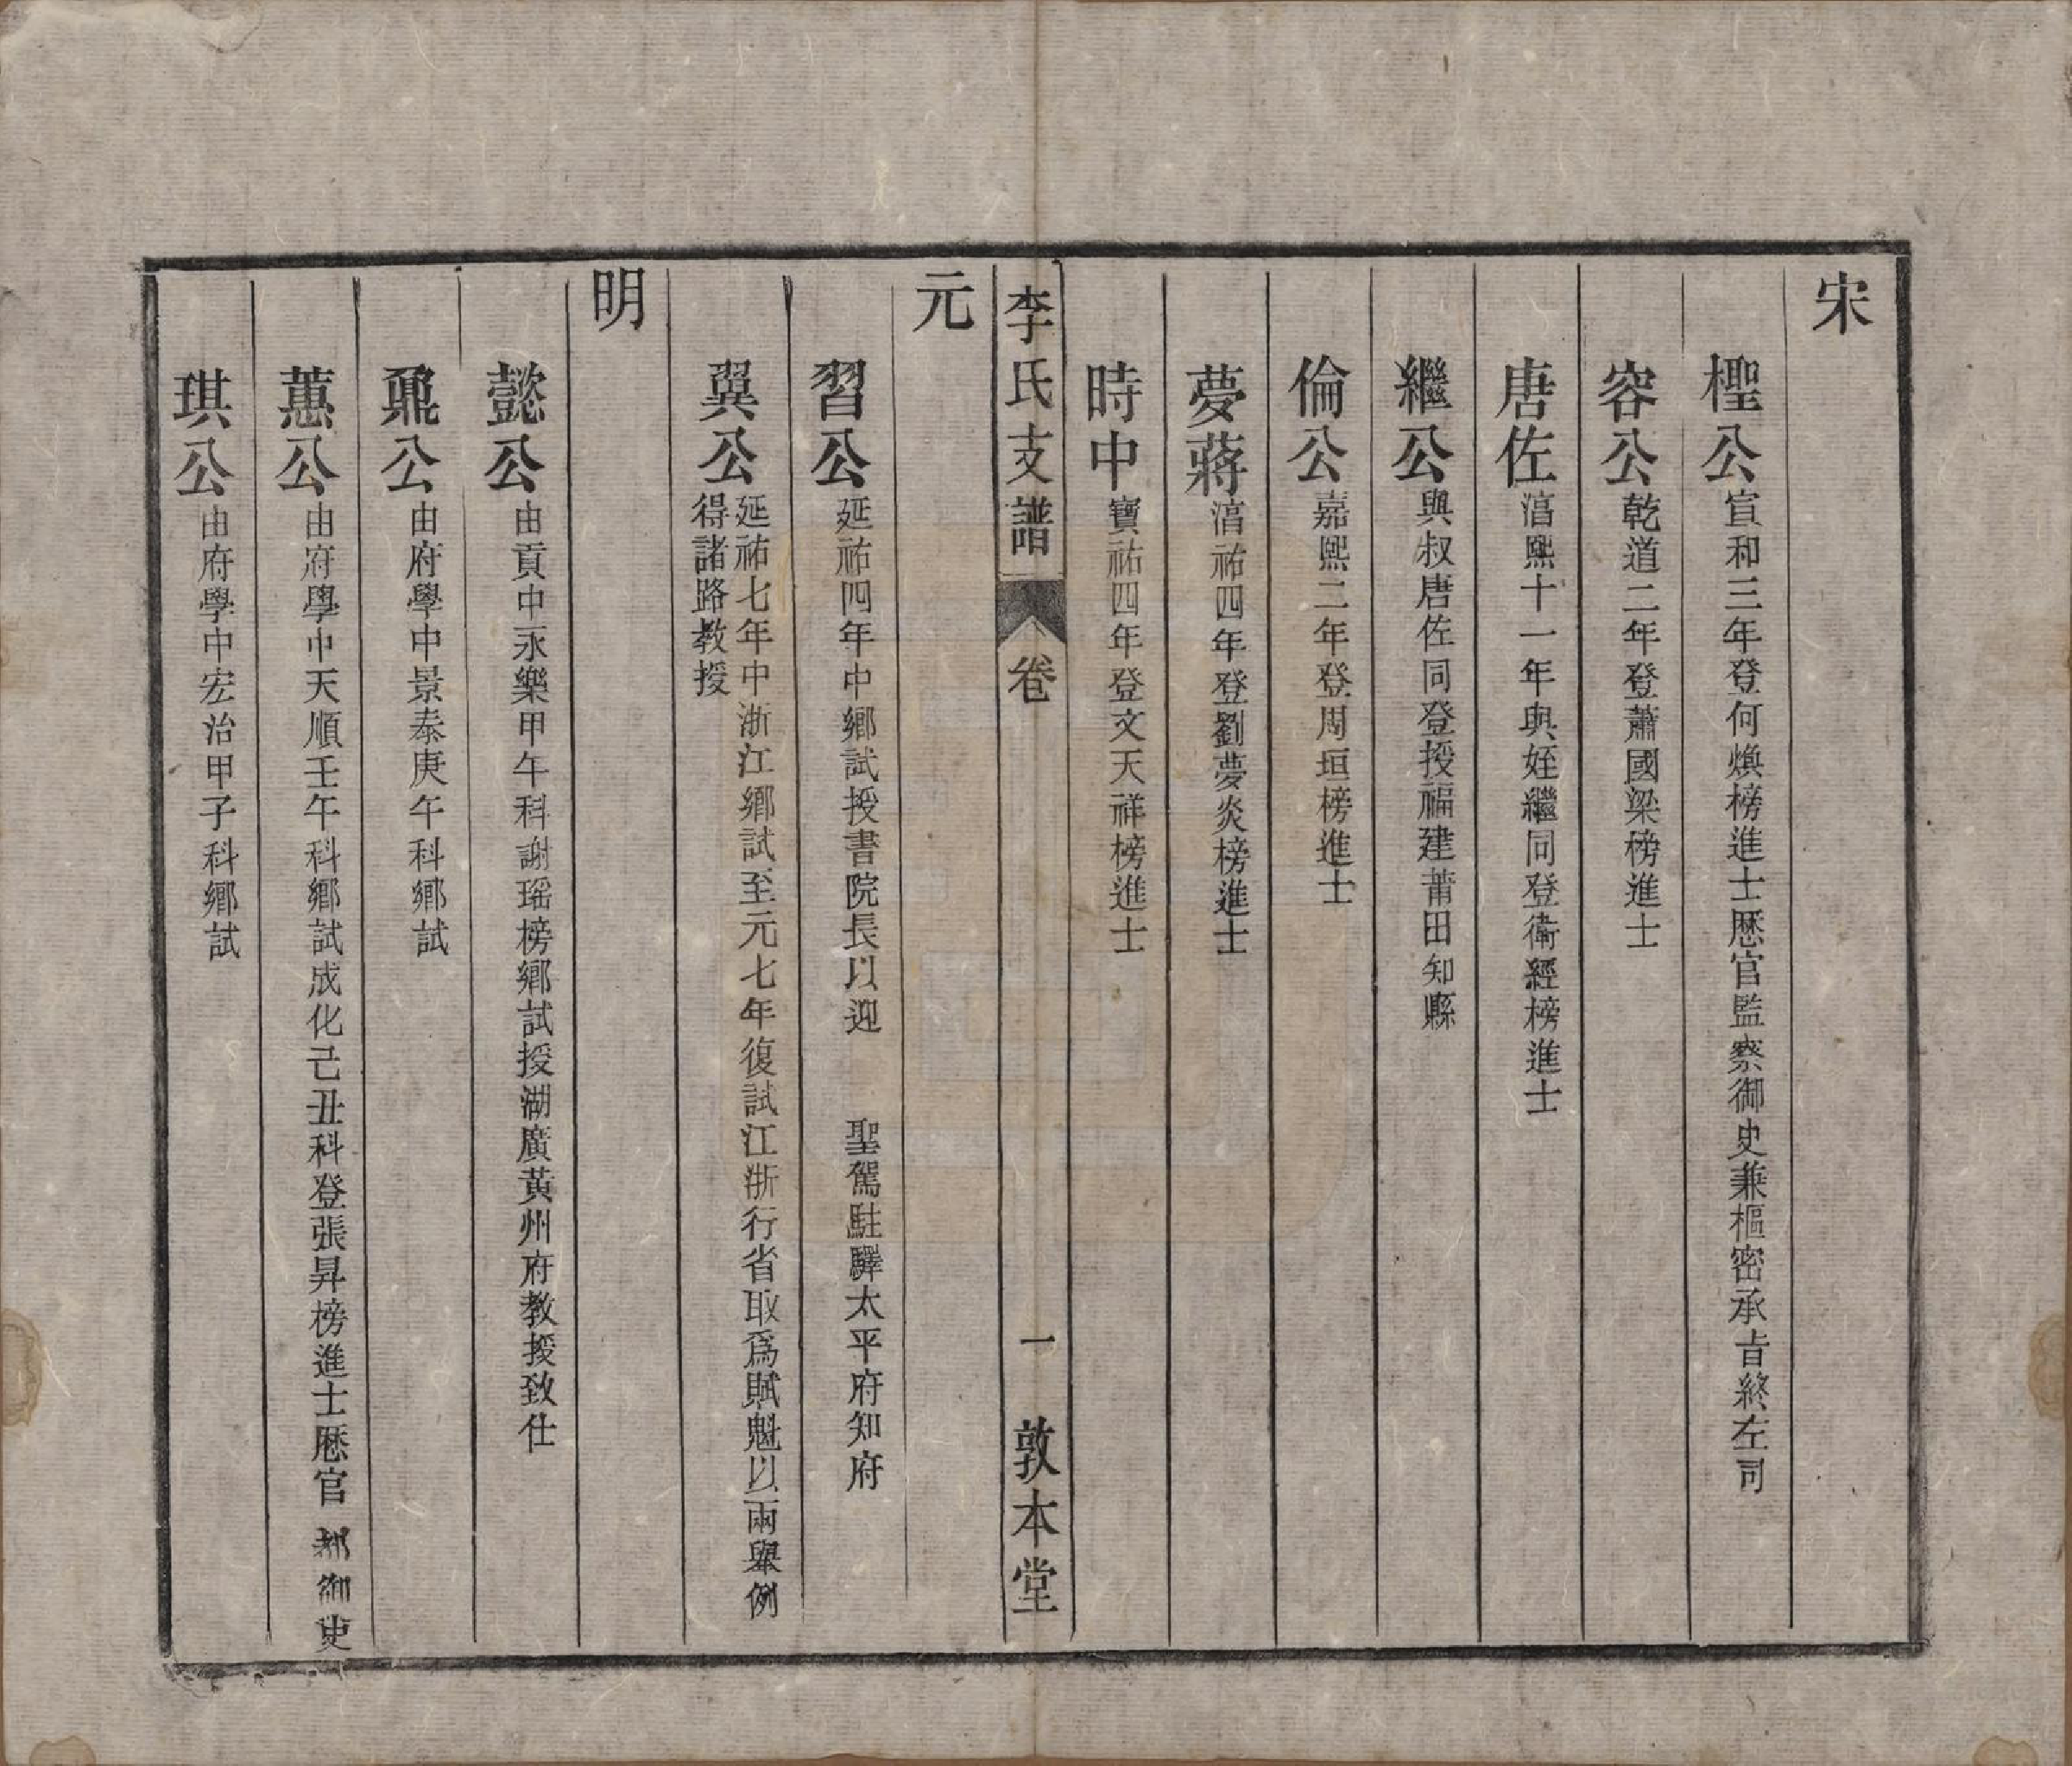 宋
檉公宣和三年登何煥榜進士歷官監察御史兼樞密承旨終左司
容公乾道二年登蕭國梁榜進士
唐佐湻熙十一年與姪繼同登衛經榜進士
繼公與叔唐佐同登授福建莆田知縣
倫公嘉熙二年登周垣榜進士
夢蔣湻祐四年登劉夢炎榜進士
時中寶祐四年登文天祥榜進士
李氏支譜 卷 一 敦本堂
元
習公延祐四年中鄉試授書院長以迎 聖駕駐驛太平府知府
翼公延祐七年中浙江鄉試至元七年復試江浙行省取爲賦魁以兩舉例
得諸路教授
明
懿公由貢中永樂甲午科謝瑶榜鄉試授湖廣黃州府教授致仕
鼐公由府學中景泰庚午科鄉試
蕙公由府學中天順壬午科鄉試成化己丑科登張昇榜進士歷官都御史
琪公由府學中宏治甲子科鄉試